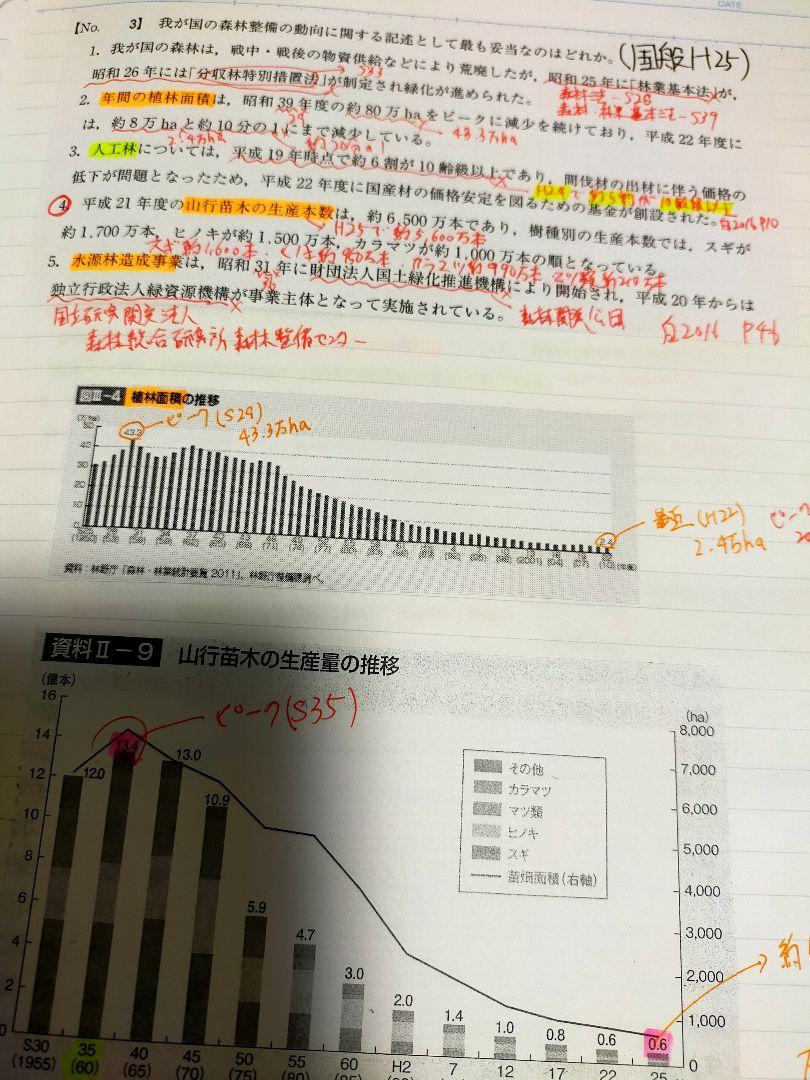 DATE
【No. 3】 我が国の森林整備の動向に関する記述として最も妥当なのはどれか。(国般H25)
1. 我が国の森林は，戦中・戦後の物資供給などにより荒廃したが，昭和25年に「林業基本法」が，
昭和26年には「分収林特別措置法」が制定され緑化が進められた。
S33
森林法-S26
森林・林業基本法-S39
2. 年間の植林面積は，昭和39年度の約80万haをピークに減少を続けており，平成22年度に
は，約8万haと約10分の1にまで減少している。
29
43.3万ha
2.4万ha
約20分の1
3. 人工林については，平成19年時点で約6割が10齢級以上であり，間伐材の出材に伴う価格の
低下が問題となったため，平成22年度に国産材の価格安定を図るための基金が創設された。
白2016 P10
④ 平成21年度の山行苗木の生産本数は，約6,500万本であり，樹種別の生産本数では，スギが
約1,700万本，ヒノキが約1,500万本，カラマツが約1,000万本の順となっている。
H25で約5,600万本
スギ約1,600本
カラマツ約990万本
5. 水源林造成事業は，昭和31年に財団法人国土緑化推進機構により開始され，平成20年からは
独立行政法人緑資源機構が事業主体となって実施されている。
36
森林開発公団
白2016 P46
国立研究開発法人
森林総合研究所 森林整備センター
図Ⅲ-4 植林面積の推移
(万ha)
50
40
30
20
10
0
43.3
ピーク(S29)
43.3万ha
2.4
最近(H22)
2.4万ha
資料：林野庁「森林・林業統計要覧2011」、林野庁整備課調べ。
資料Ⅱ-9 山行苗木の生産量の推移
(億本)
16
14
12
10
8
6
4
2
0
ピーク(S35)
12.0
13.4
13.0
10.9
5.9
4.7
3.0
2.0
1.4
1.0
0.8
0.6
0.6
その他
カラマツ
マツ類
ヒノキ
スギ
苗畑面積(右軸)
(ha)
8,000
7,000
6,000
5,000
4,000
3,000
2,000
1,000
0
約
S30 35 40 45 50 55 60 H2 7 12 17 22 25
(1955) (60) (65) (70) (75)